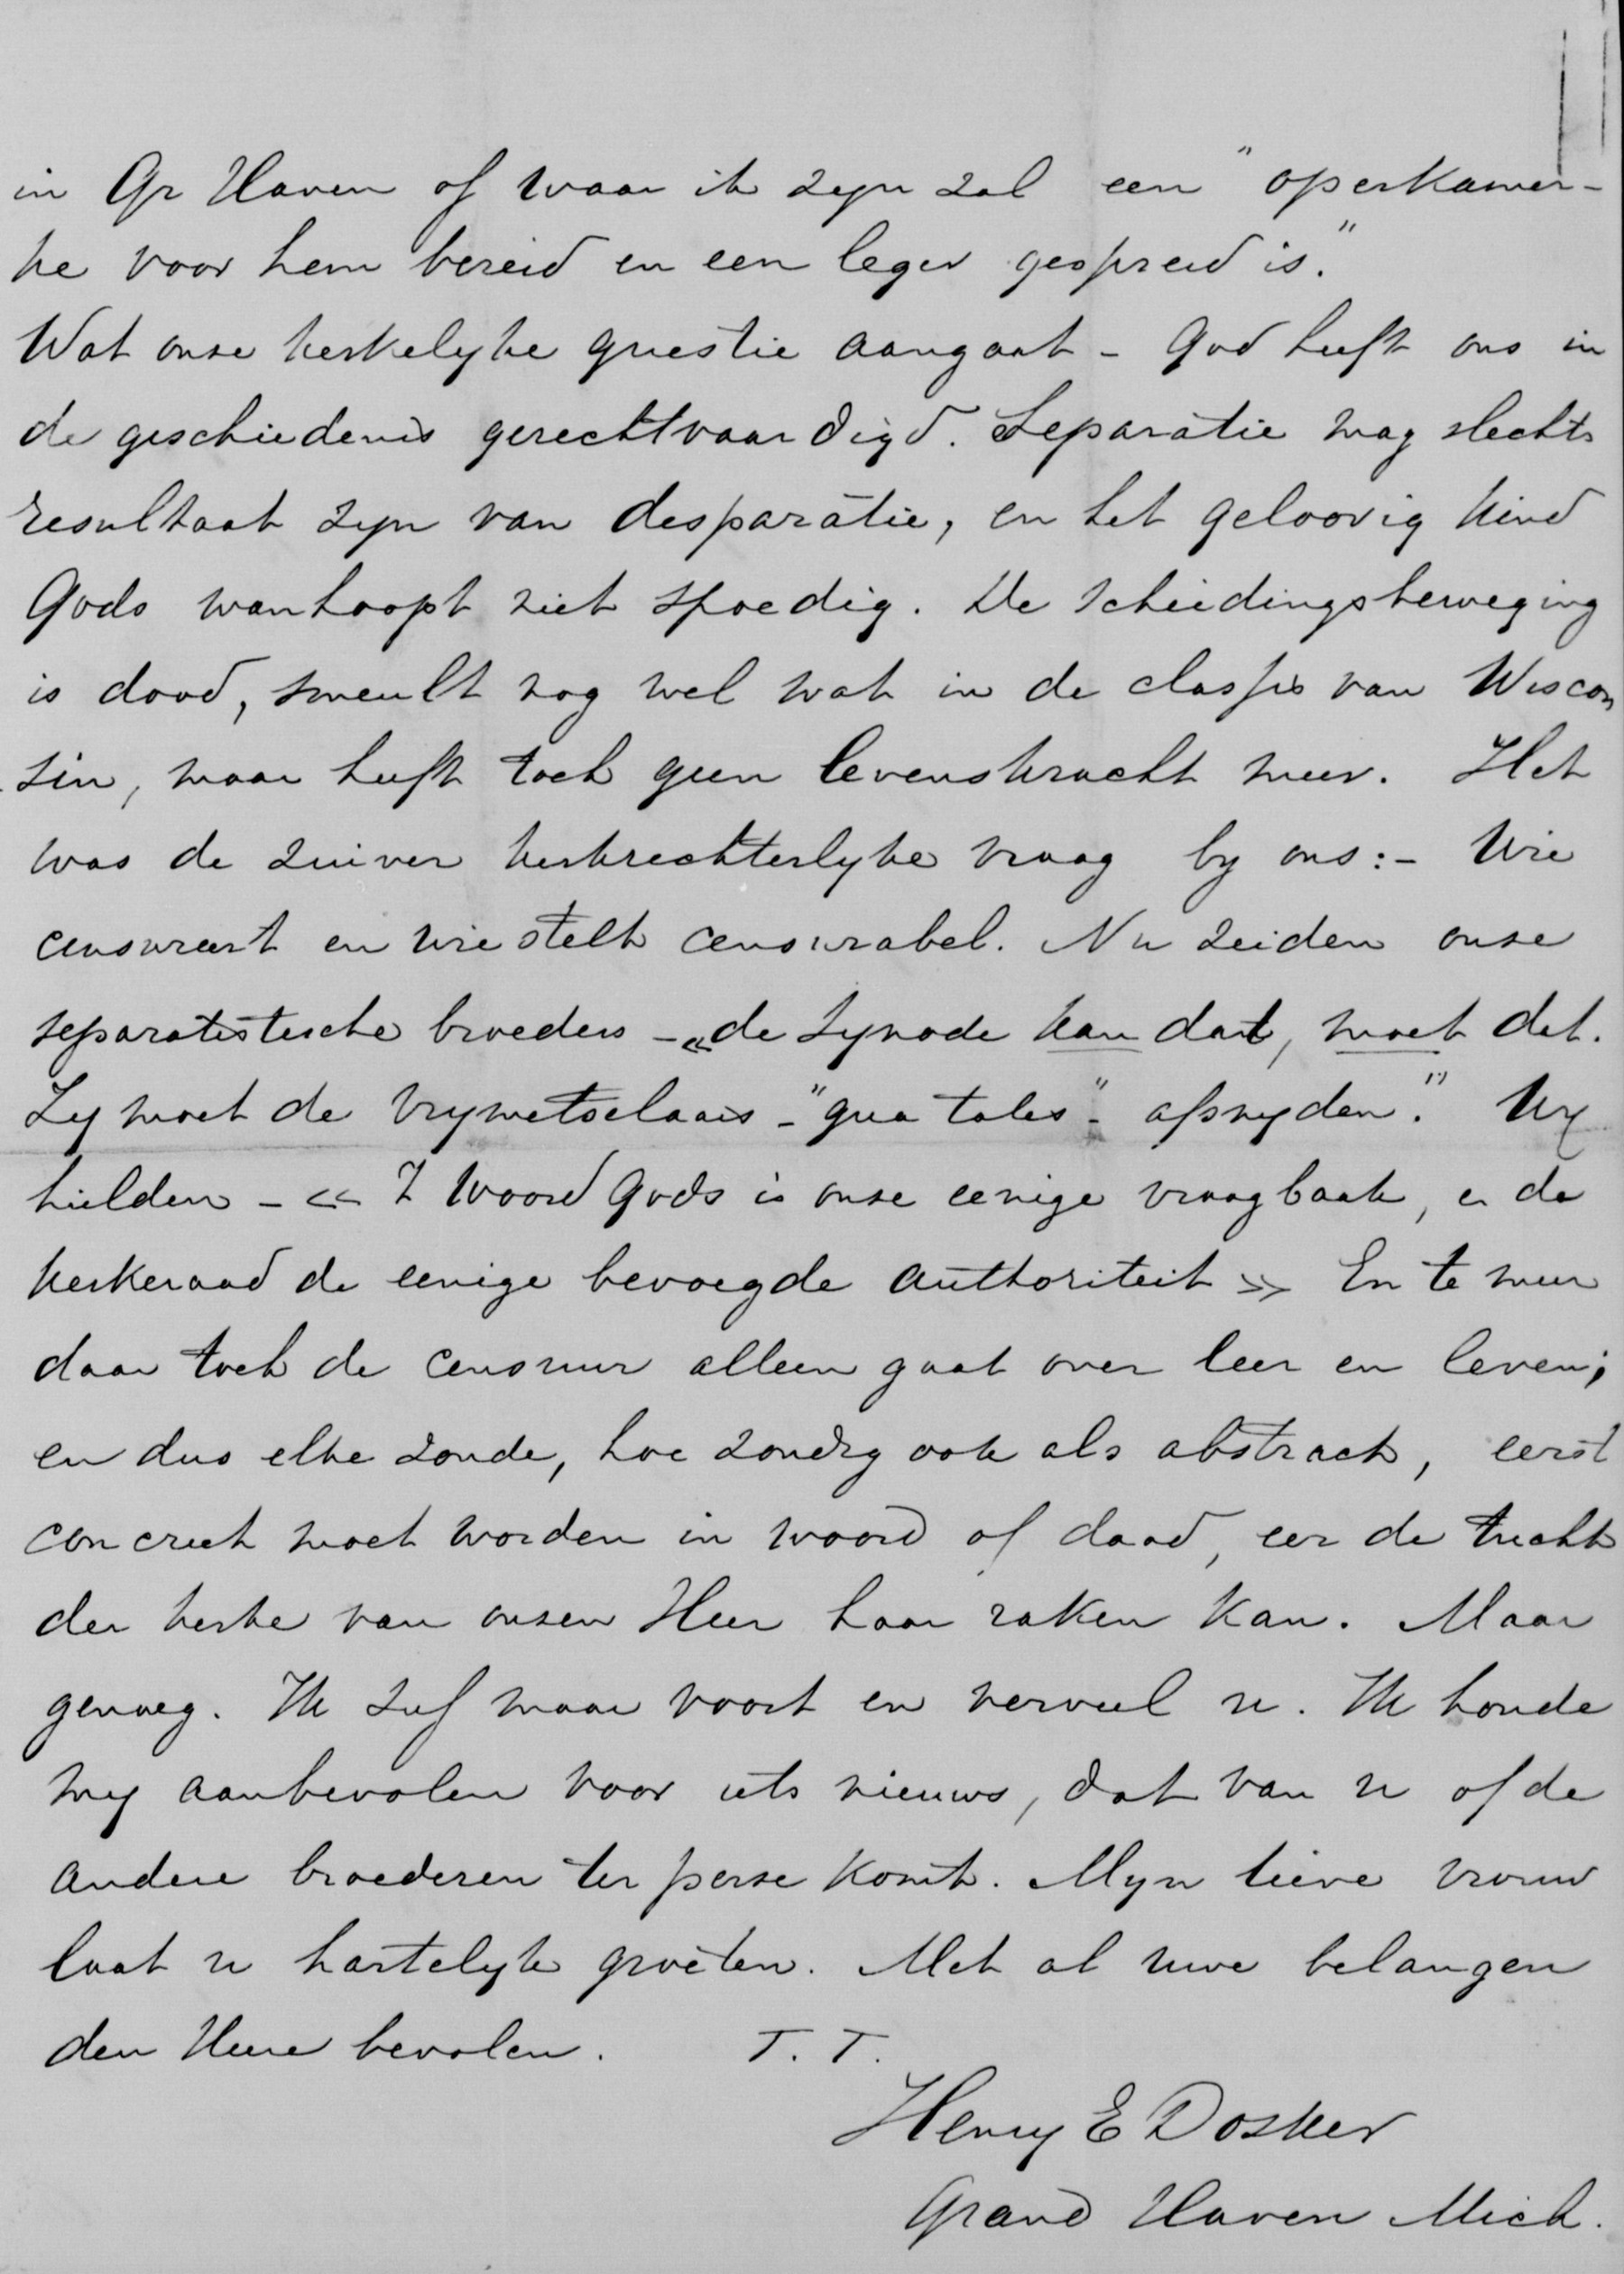 in Gr Haven of waar ik zyn zal een "operkamer-
ke voor hem bereid en een leger gespreid is."
Wat onze kerkelyke questie aangaat - God heeft ons in
de geschiedenis gerechtvaardigd. Separatie mag slechts
resultaat zyn van desparatie, en het geloovig kind
Gods wanhoopt niet spoedig. De scheidingsbeweging
is dood, smeult nog wel wat in de classis van Wiscon
sin, maar heeft toch geen levenskracht meer. Het
was de zuiver kerkrechterlyke vraag by ons:- Wie
censureert en wie stelt censurabel. Nu zeiden onze
separatistische broeders - «de Synode kan dat, moet dat.
Zy moet de vrymetselaars - "qua tales" - afsnyden." Wy
hielden - « 't Woord Gods is onze eenige vraagbaak, en de
kerkeraad de eenige bevoegde authoriteit » En te meer
daar toch de censuur alleen gaat over leer en leven;
en dus elke zonde, hoe zondig ook als abstract, eerst
concreet moet worden in woord of daad, eer de tucht
der kerke van onzen Heer haar raken kan. Maar
genoeg. Ik suf maar voort en verveel u. Ik houde
my aanbevolen voor iets nieuws, dat van u of de
andere broederen ter perse komt. Myn lieve vrouw
laat u hartelyk groeten. Met al uwe belangen
den Heere bevolen. T. T.
Henry E Dosker
Grand Haven Mich.